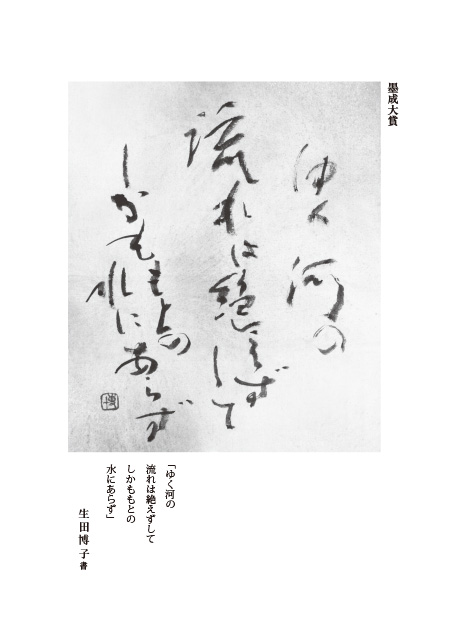 墨成大賞
ゆく河の
流れは絶えずして
しかももとの
水にあらず
博
「ゆく河の
流れは絶えずして
しかももとの
水にあらず」
生田博子書